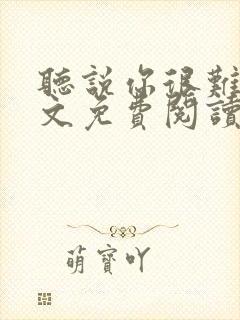 聽說你很難
文免費閱讀
萌寶吖